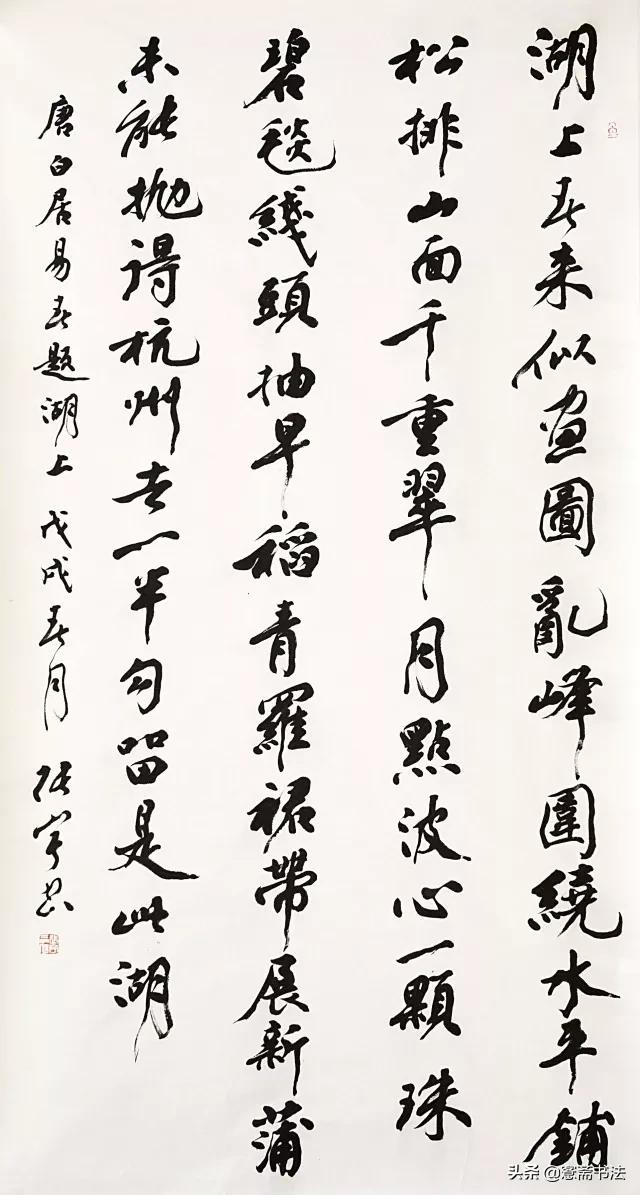 湖上春来似画圖亂峰圍繞水平鋪
松排山面千重翠月點波心一顆珠
碧毯綫頭抽早稻青羅裙帶展新蒲
未能抛得杭州去一半勾留是此湖
唐白居易春题湖上 戊戌春月 张宇书
头条 @窓斋书法